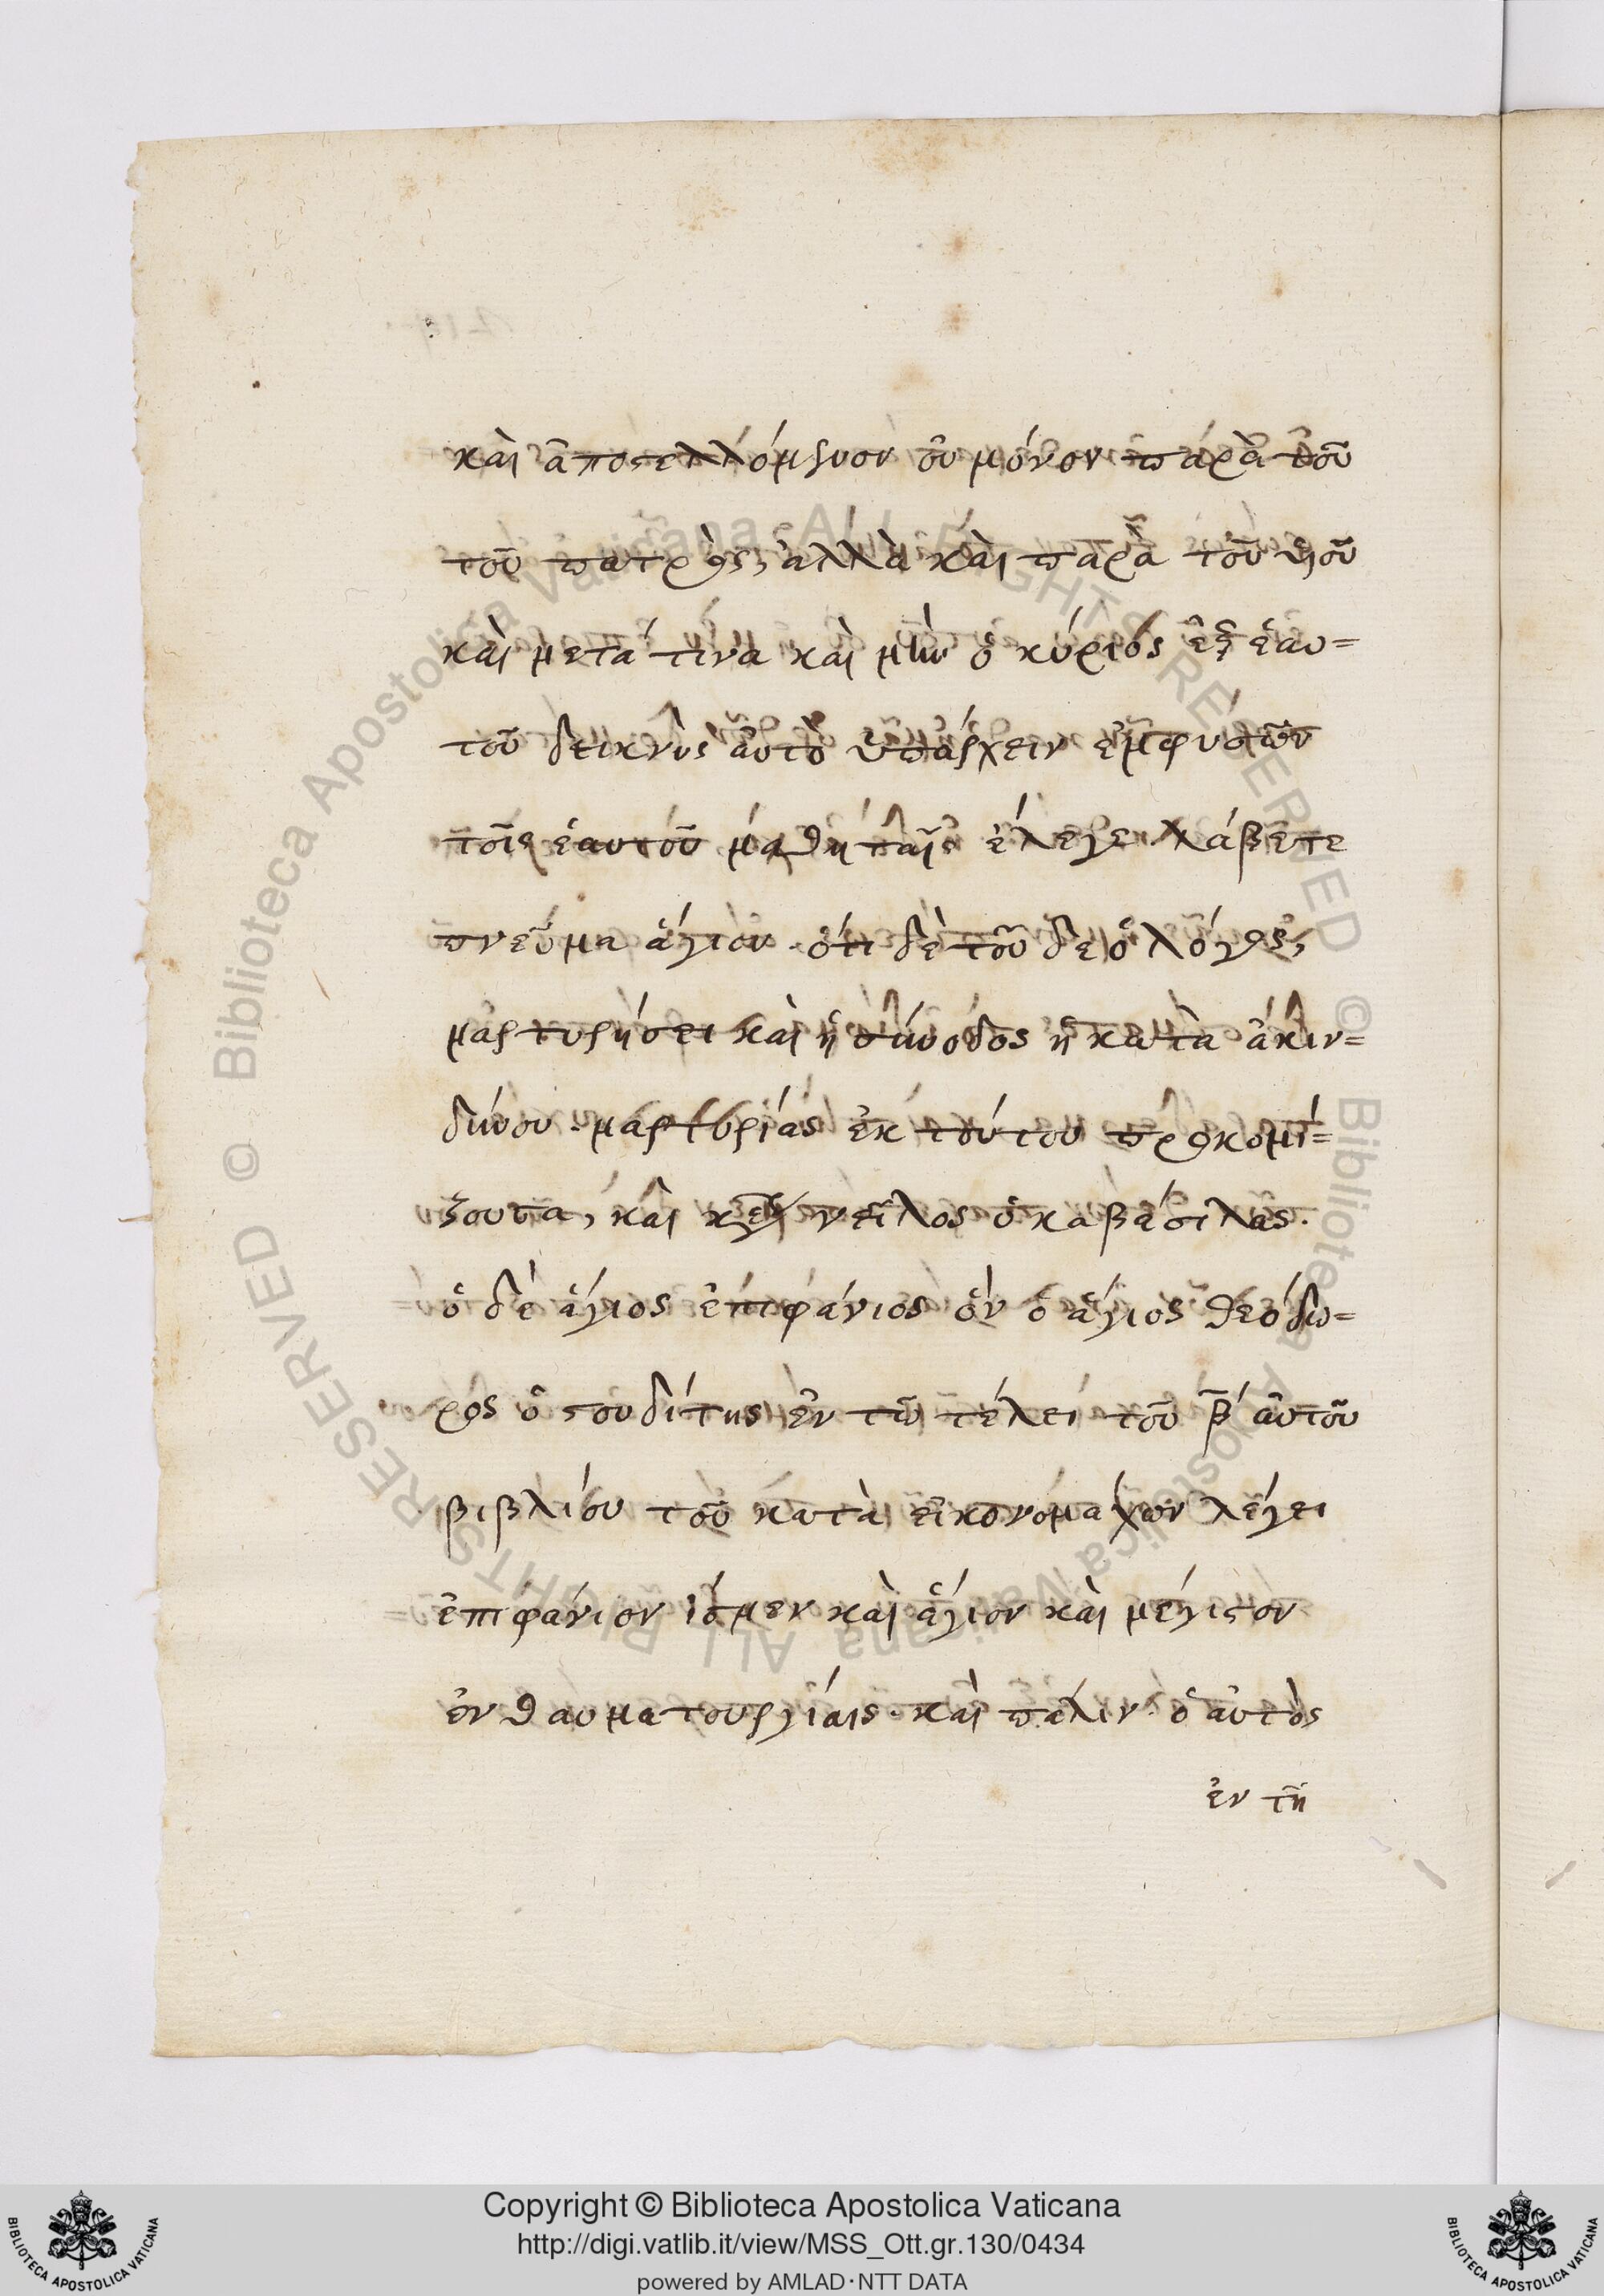 καὶ ἀποστελλόμενον οὐ μόνον παρὰ τοῦ
τοῦ πατρὸς, ἀλλὰ καὶ παρὰ τοῦ υἱοῦ
καὶ μετά τινα καὶ μὴν ὁ κύριος ἐξ ἑαυ=
τοῦ δεικνὺς αὐτὸ ὑπάρχειν ἐμφυσῶν
τοῖς ἑαυτοῦ μαθηταῖς ἔλεγε λάβετε
πνεῦμα ἅγιον. ὅτι δὲ τοῦδε ὁ λόγος,
μαρτυρήσει καὶ ἡ σύνοδος ἡ κατὰ ἀκιν=
δύνου. μαρτυρίας ἐκ τούτου προκομί=
ζουσα, καὶ νεῖλος ὁ καβάσιλας.
ὁ δὲ ἅγιος ἐπιφάνιος ὃν ὁ ἅγιος θεόδω=
ρος ὁ στουδίτης ἐν τῷ τέλει τοῦ β αὐτοῦ
βιβλίου τοῦ κατὰ εἰκονομάχων λέγει
ἐπιφάνιον ἴσμεν καὶ ἅγιον καὶ μέγιστον
ἐν θαυματουργίαις. καὶ πάλιν ὁ αὐτὸς
ἐν τῇ
Copyright © Biblioteca Apostolica Vaticana
http://digi.vatlib.it/view/MSS_Ott.gr.130/0434
powered by AMLAD·NTT DATA
BIBLIOTECA APOSTOLICA VATICANA
BIBLIOTECA APOSTOLICA VATICANA
© Biblioteca Apostolica Vaticana ALL RIGHTS RESERVED
© Biblioteca Apostolica Vaticana ALL RIGHTS RESERVED